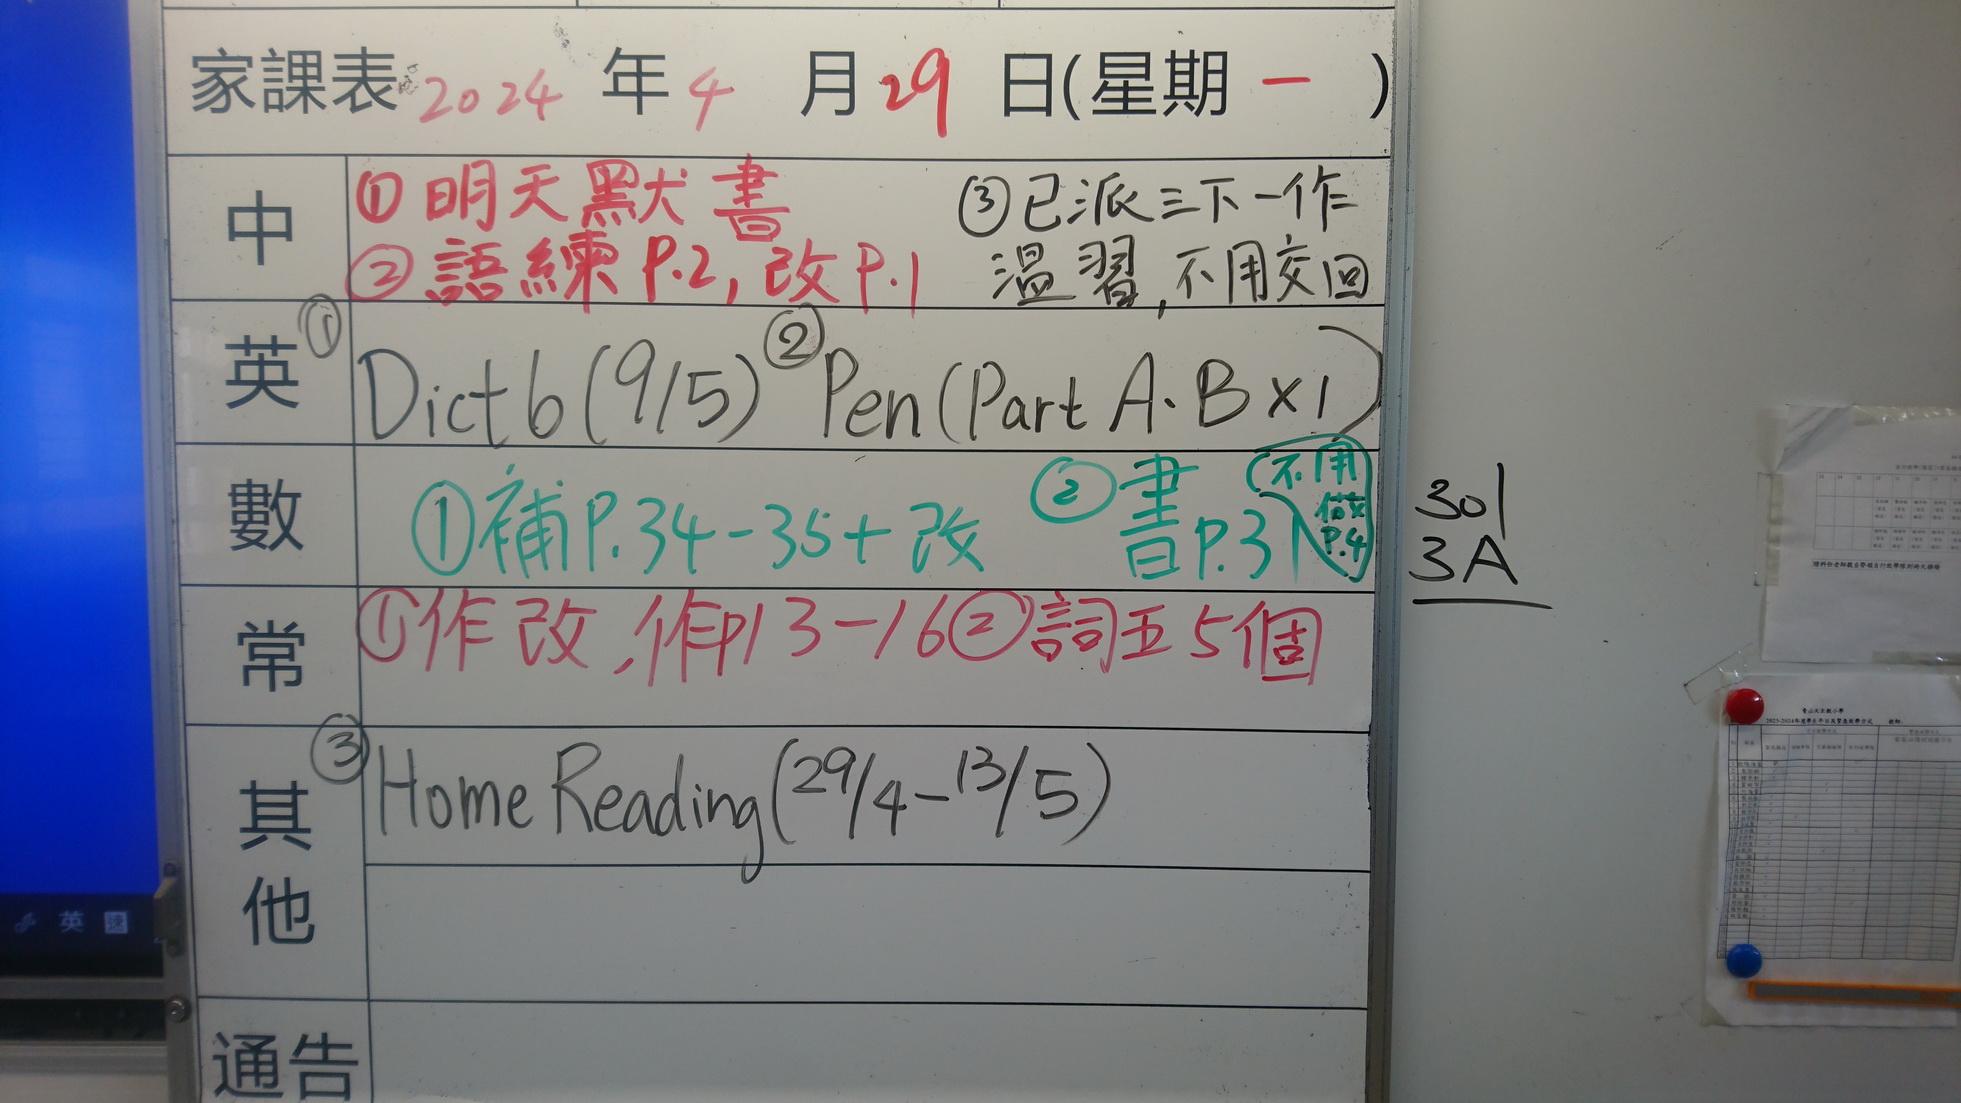 家課表 2024 年 4 月 29 日(星期 一 )
中
① 明天默書
② 語練 P.2, 改 P.1
③ 已派三下一作
溫習, 不用交回
英
① Dict 6 (9/5) ② Pen (Part A. B x 1)
數
① 補 P.34-35 + 改 ② 書 P.3 (不用
做
P.4)
301
3A
常
① 作改, 作P13-16 ② 詞五 5個
其他
③ Home Reading (29/4-13/5)
通告
英